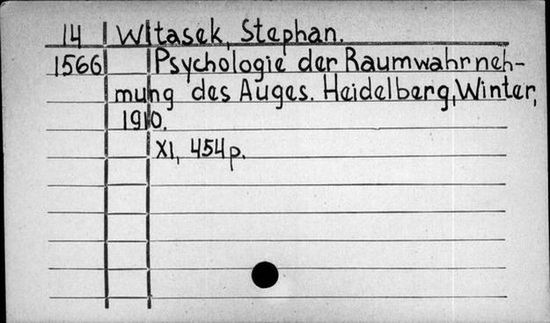 14 Witasek, Stephan.
1566 Psychologie der Raumwahrneh-
mung des Auges. Heidelberg, Winter,
1910.
XI, 454 p.